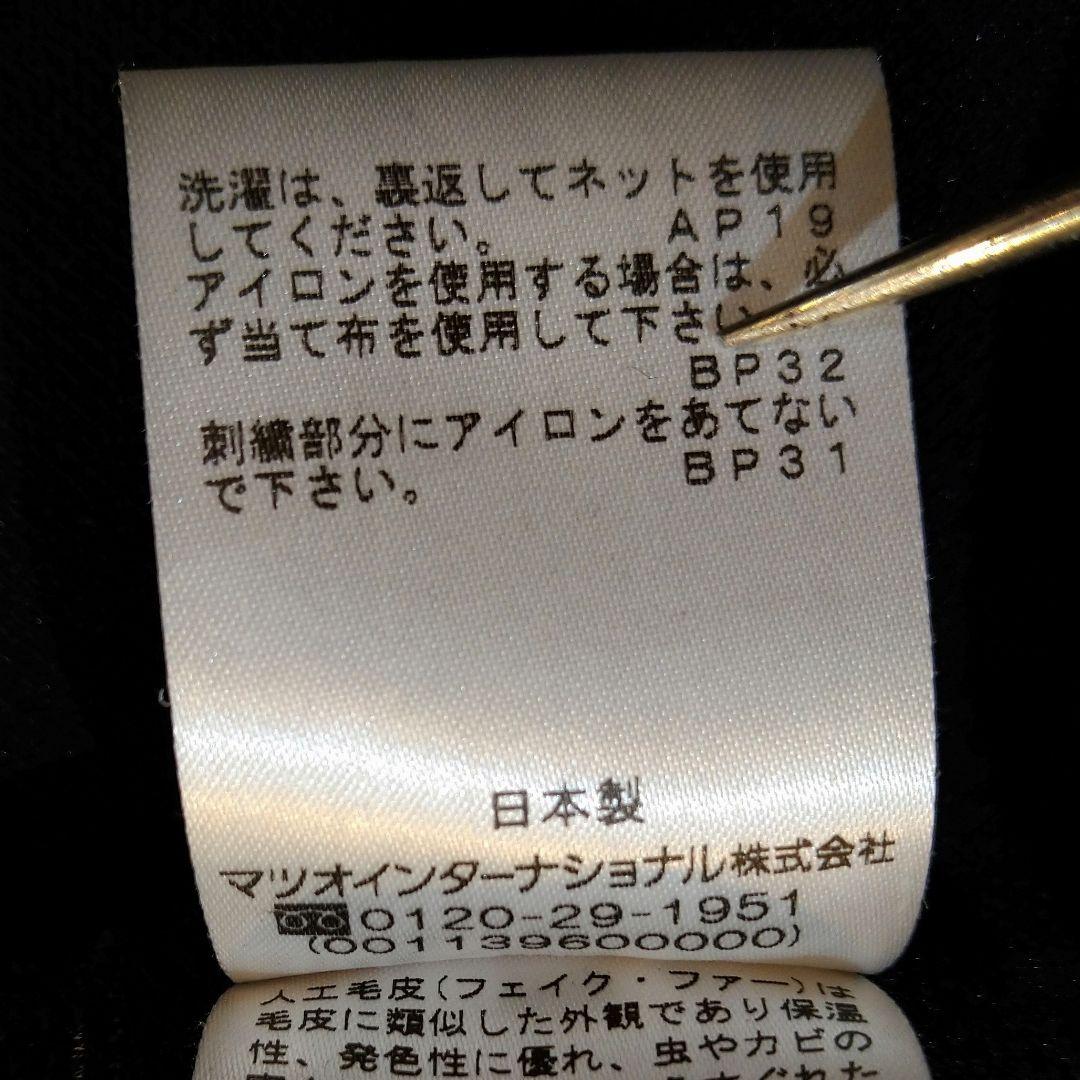 洗濯は、裏返してネットを使用
してください。 AP19
アイロンを使用する場合は、必
ず当て布を使用して下さい
BP32
刺繍部分にアイロンをあてない
で下さい。 BP31
日本製
マツオインターナショナル株式会社
0120-29-1951
(001139600000)
人工毛皮(フェイク・ファー)は
毛皮に類似した外観であり保温
性、発色性に優れ、虫やカビの